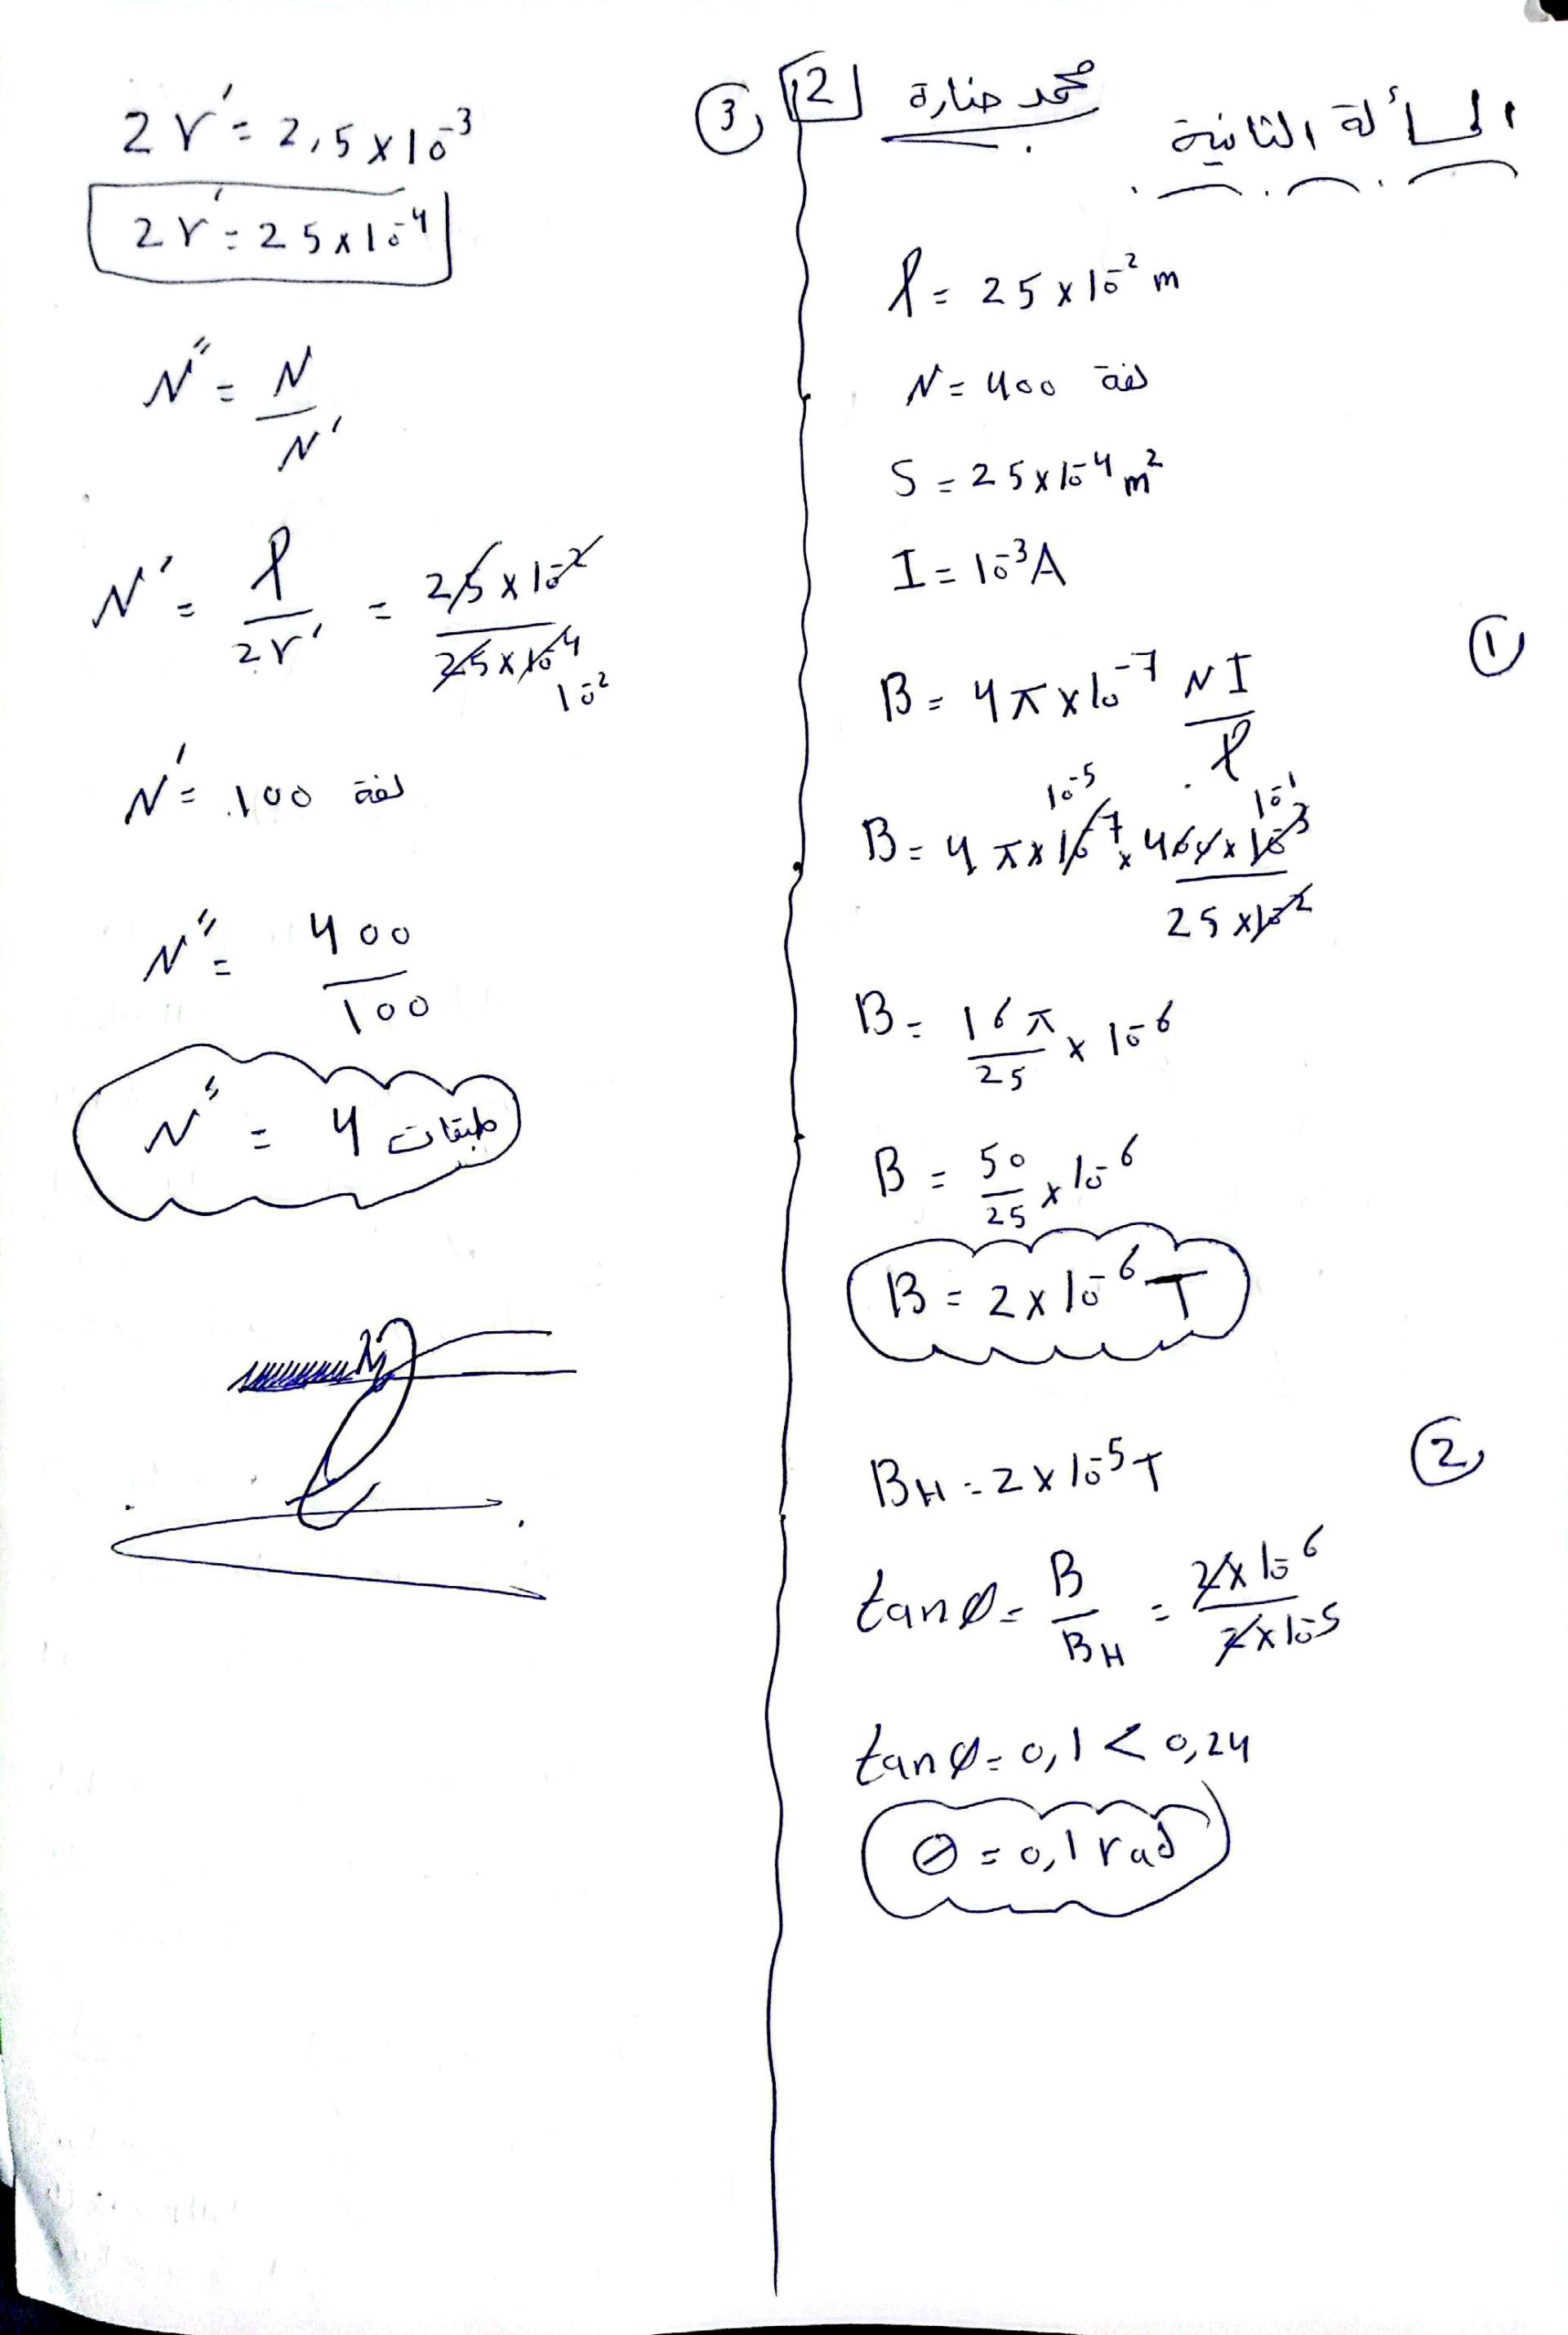 المسألة الثانية
محمد جنارة
2
l = 25 x 10⁻² m
N = 400 لفة
S = 25 x 10⁻⁴ m²
I = 10⁻³ A
①
B = 4π x 10⁻⁷ NI / l
B = 4π x 10⁻⁷ x 400 x 10⁻³ / 25 x 10⁻²
10⁻⁵ 10⁻¹
B = 16π / 25 x 10⁻⁶
B = 50 / 25 x 10⁻⁶
B = 2 x 10⁻⁶ T
②
B_H = 2 x 10⁻⁵ T
tan θ = B / B_H = 2 x 10⁻⁶ / 2 x 10⁻⁵
tan θ = 0,1 < 0,24
θ = 0,1 rad
③
2r' = 2,5 x 10⁻³
2r' = 25 x 10⁻⁴
N'' = N / N'
N' = l / 2r' = 25 x 10⁻² / 25 x 10⁻⁴
10⁻²
N' = 100 لفة
N'' = 400 / 100
N'' = 4 طبقات